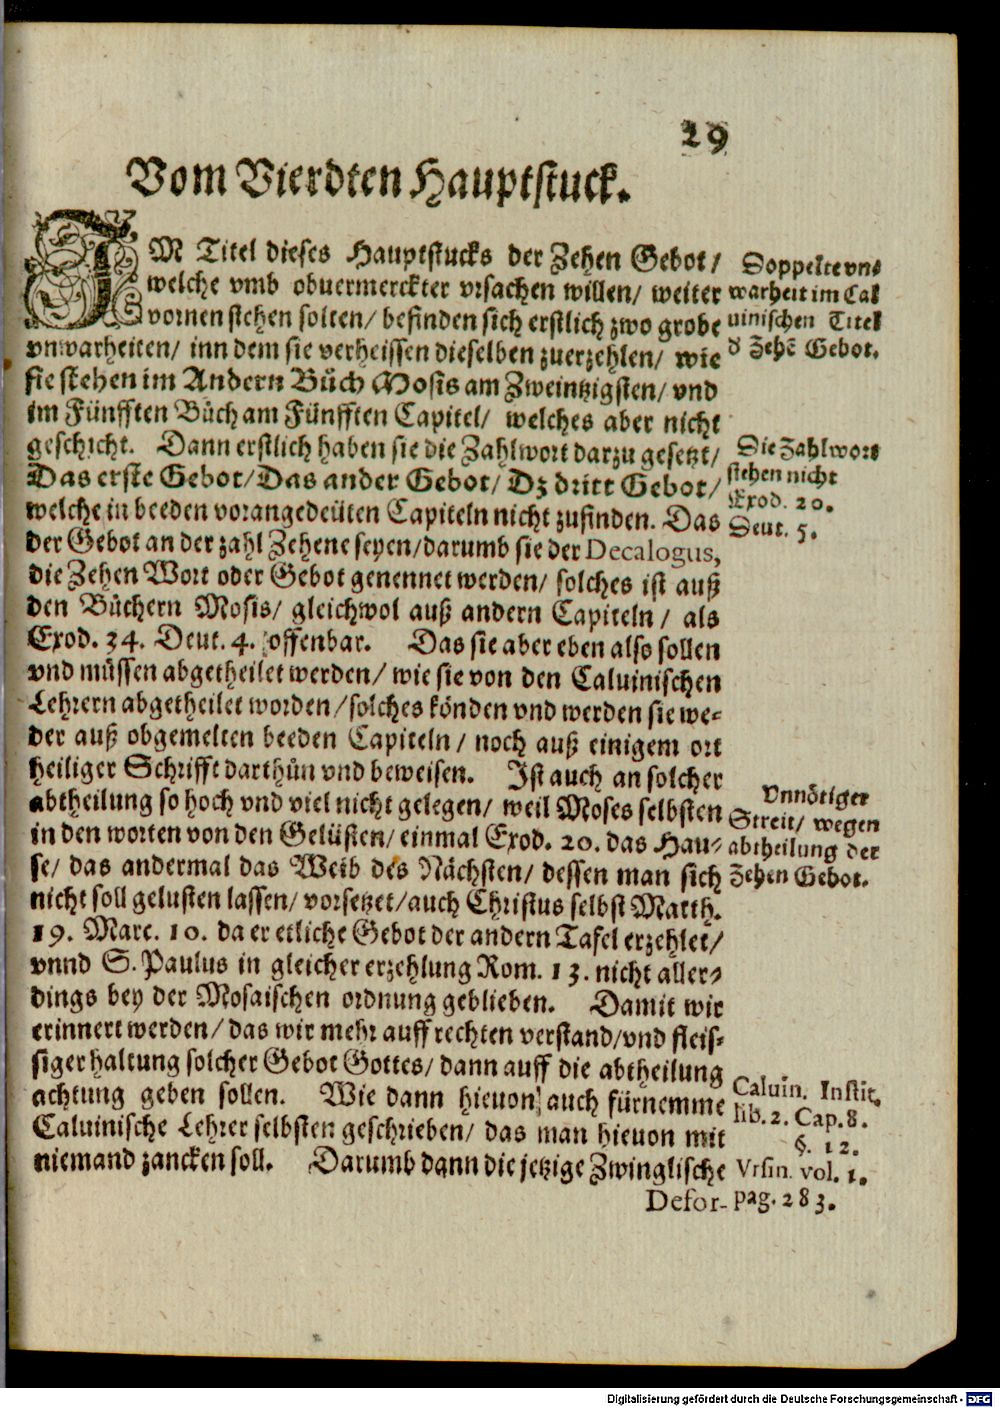 29
Vom Vierdten Hauptstuck.
IM Titel dieses Hauptstucks der Zehen Gebot/
welche vmb obuermerckter vrsachen willen/ weiter
vornen stehen solten/ befinden sich erstlich zwo grobe
vnwarheiten/ inn dem sie verheissen dieselben zuerzehlen/ wie
sie stehen im Andern Bůch Mosis am Zweintzigsten/ vnd
im Fünfften Bůch am Fünfften Capitel/ welches aber nicht
geschicht. Dann erstlich haben sie die Zahlwort darzu gesetzt/
Das erste Gebot/ Das ander Gebot/ Dz dritt Gebot/
welche in beeden vorangedeüten Capiteln nicht zufinden. Das
der Gebot an der zahl Zehene seyen/ darumb sie der Decalogus,
die Zehen Wort oder Gebot genennet werden/ solches ist auß
den Büchern Mosis/ gleichwol auß andern Capiteln/ als
Exod. 34. Deut. 4. offenbar. Das sie aber eben also sollen
vnd müssen abgetheilet werden/ wie sie von den Caluinischen
Lehrern abgetheilet worden/ solches könden vnd werden sie we-
der auß obgemelten beeden Capiteln/ noch auß einigem ort
heiliger Schrifft darthůn vnd beweisen. Ist auch an solcher
abtheilung so hoch vnd viel nicht gelegen/ weil Moses selbsten
in den worten von den Gelüsten/ einmal Exod. 20. das Hau-
se/ das andermal das Weib des Nächsten/ dessen man sich
nicht soll gelusten lassen/ vorsetzet/ auch Christus selbst Matth.
19. Marc. 10. da er etliche Gebot der andern Tafel erzehlet/
vnnd S. Paulus in gleicher erzehlung Rom. 13. nicht aller-
dings bey der Mosaischen ordnung geblieben. Damit wir
erinnert werden/ das wir mehr auff rechten verstand/ vnd fleis-
siger haltung solcher Gebot Gottes/ dann auff die abtheilung
achtung geben sollen. Wie dann hieuon auch fürnemme
Caluinische Lehrer selbsten geschrieben/ das man hieuon mit
niemand zancken soll. Darumb dann die jetzige Zwinglische
Defor-
Doppelte vn-
warheit im Cal
uinischen Titel
d Zehē Gebot.
Die Zahlwort
stehen nicht
Exod. 20.
Deut. 5.
Vnnötiger
Streit/ wegen
abtheilung der
Zehen Gebot.
Caluin. Instit.
lib. 2. Cap. 8.
§. 12.
Vrsin. vol. 1.
pag. 283.
Digitalisierung gefördert durch die Deutsche Forschungsgemeinschaft - DFG